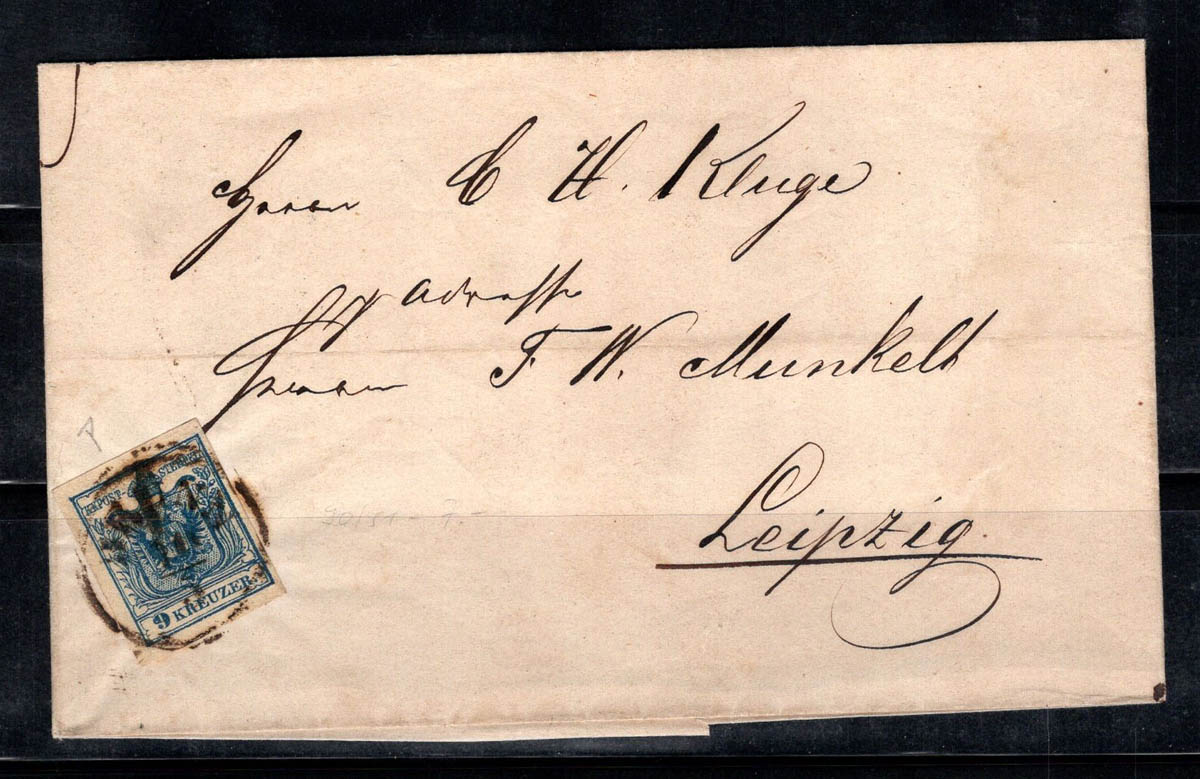 Herrn C H. Kluge
Adresse
Herrn F. W. Munkelt
Leipzig
KK POST-STEMPEL
9 KREUZER